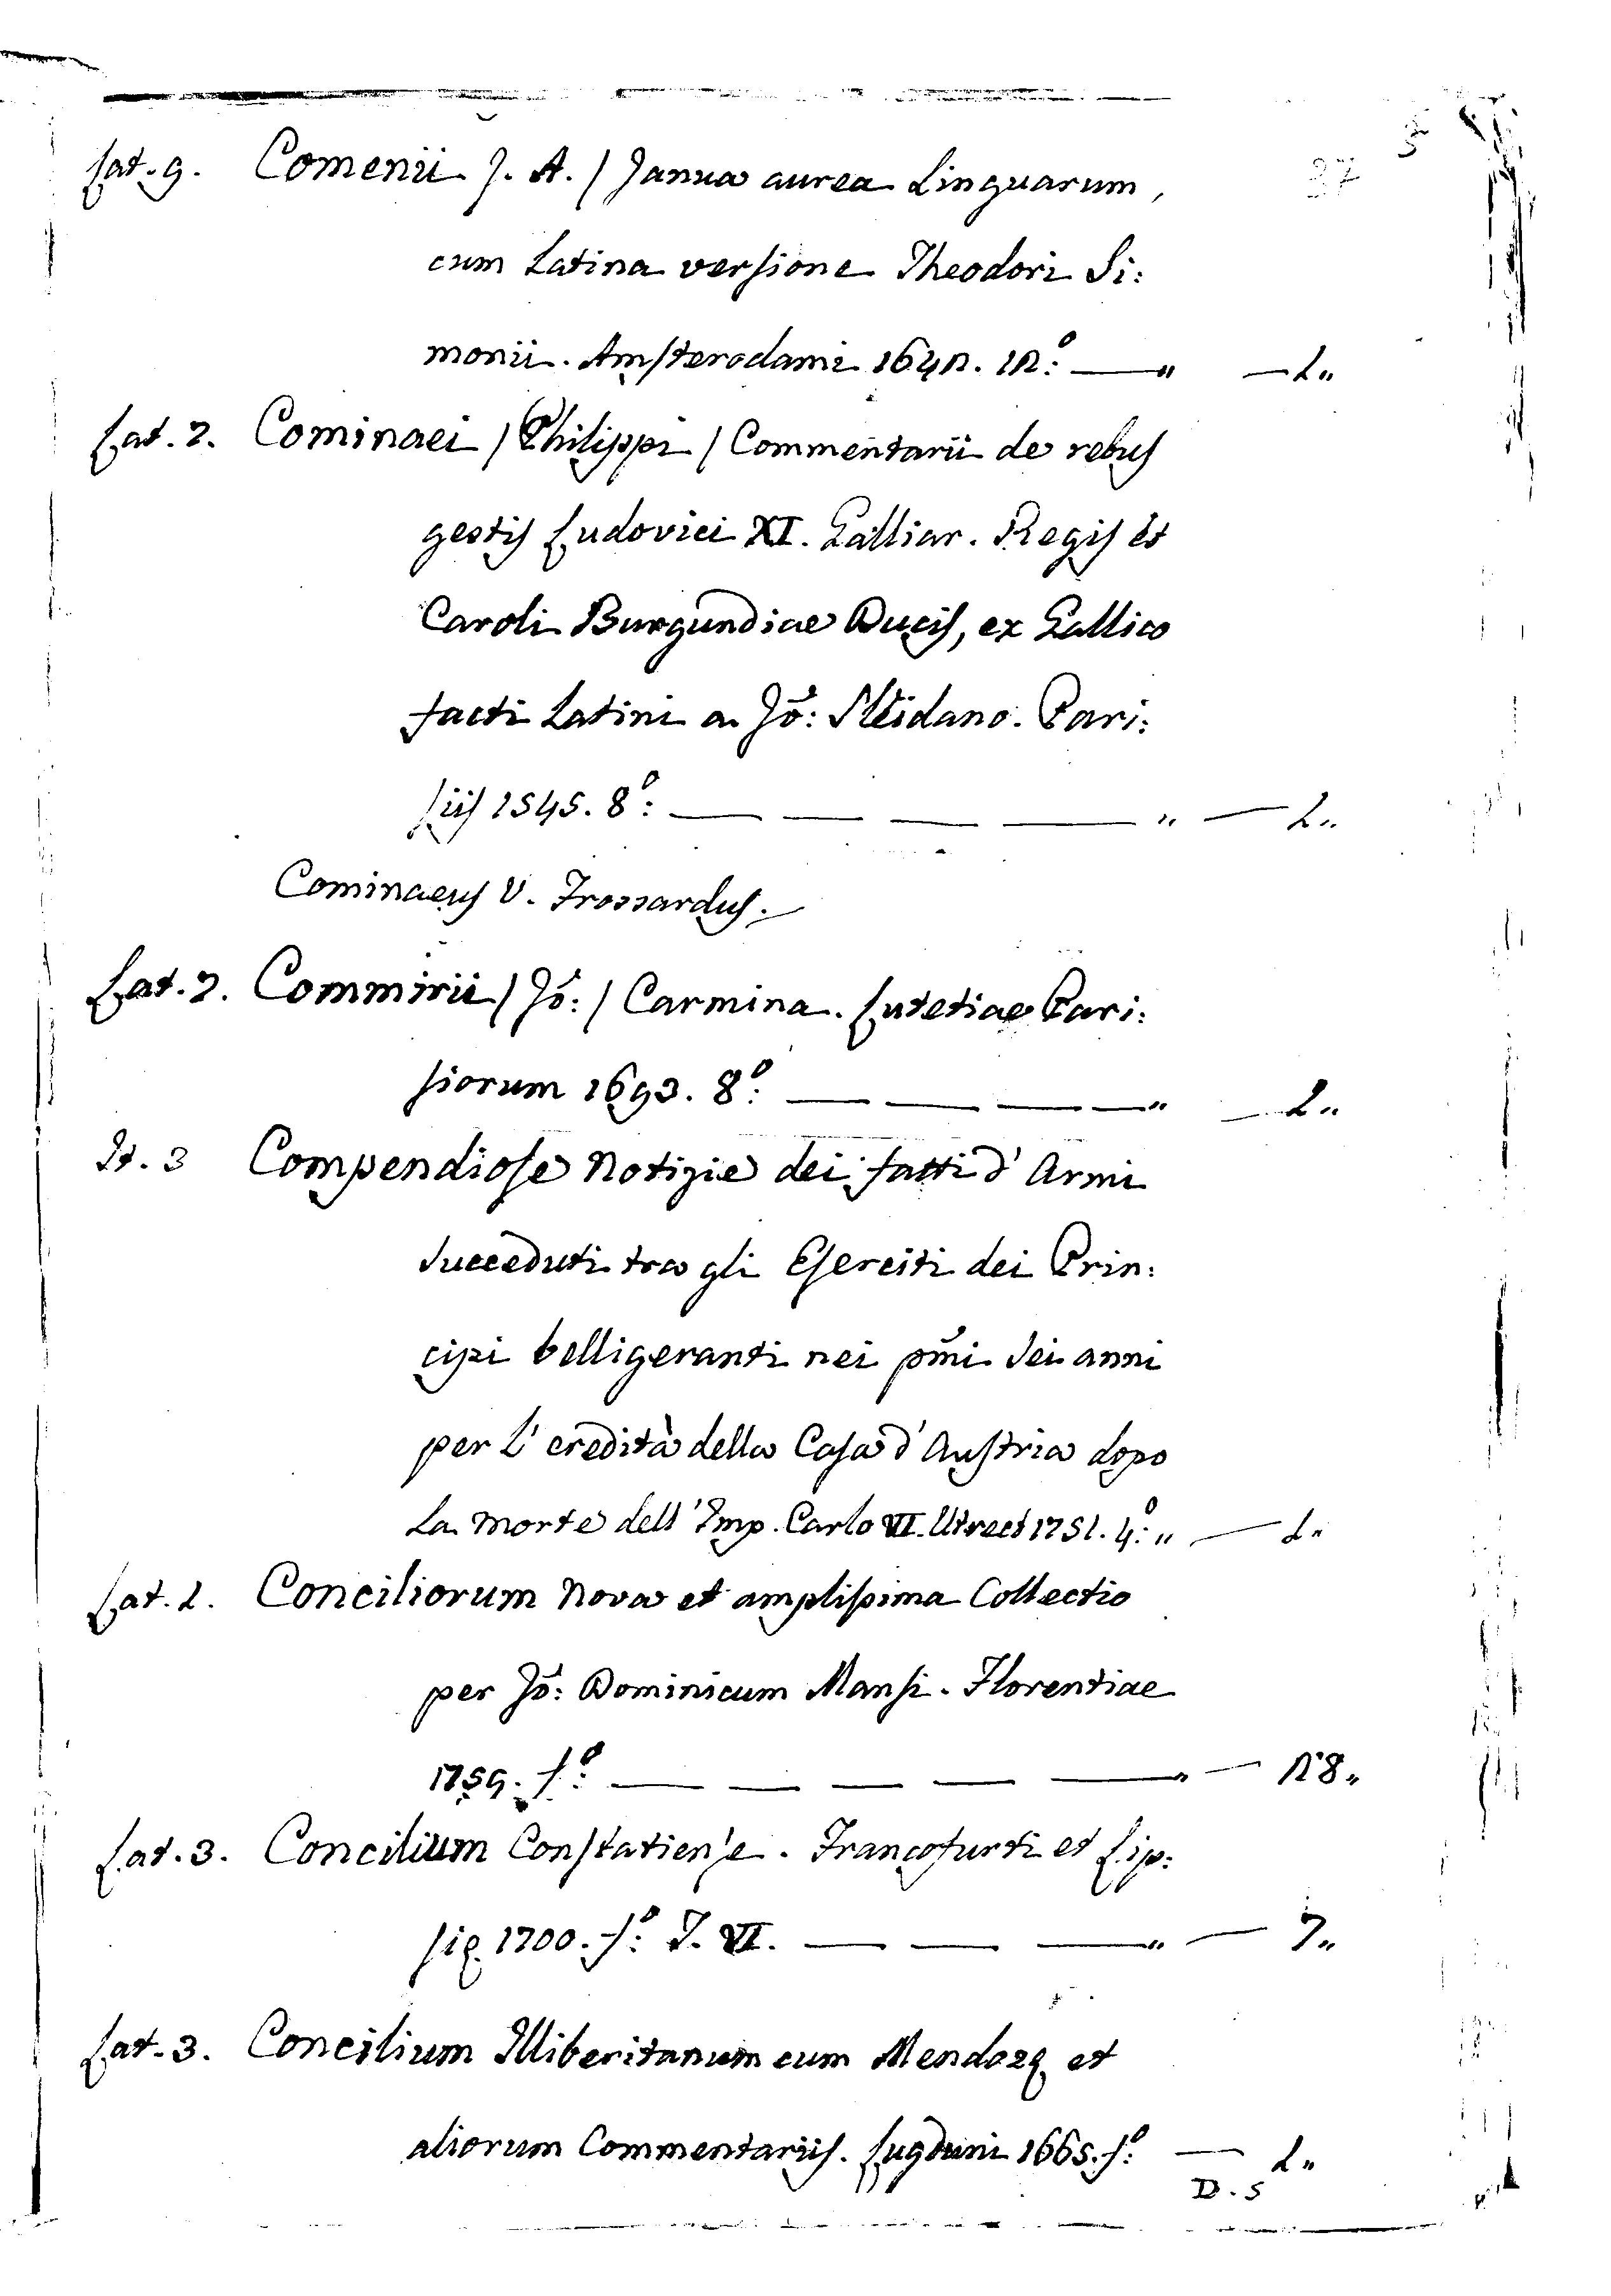 37 5
Lat. 9. Comenii J. A. / Janua aurea Linguarum,
cum Latina versione Theodori Si:
monii. Amsterodami 1642. 12.º — „ — 1„
Lat. 2. Cominaei / Philippi / Commentarii de rebus
gestis Ludovici XI. Galliar. Regis et
Caroli Burgundiae Ducis, ex Gallico
facti Latini a Jō: Sleidano. Pari:
siis 1545. 8.º — — — — „ — 1„
Cominaeus V. Frossardus.
Lat. 2. Commirii / Jō: / Carmina. Lutetiae Pari:
siorum 1693. 8.º — — — — „ — 1„
It. 3 Compendiose Notizie dei fatti d' Armi
succeduti tra gli Eserciti dei Prin:
cipi belligeranti nei pm̄i sei anni
per l' eredità della Casa d' Austria dopo
la morte dell' Imp. Carlo VI. Utrect 1751. 4.º „ — 1„
Lat. 1. Conciliorum Nova et amplissima Collectio
per Jō: Dominicum Mansi. Florentiae
1759. f.º — — — — — „ — 28„
Lat. 3. Concilium Constatiense. Francofurti et Lip:
się 1700. f.º T. VI. — — — „ — 7„
Lat. 3. Concilium Illiberitanum cum Mendozę et
aliorum Commentariis. Lugduni 1665. f.º — 1„
D. 5